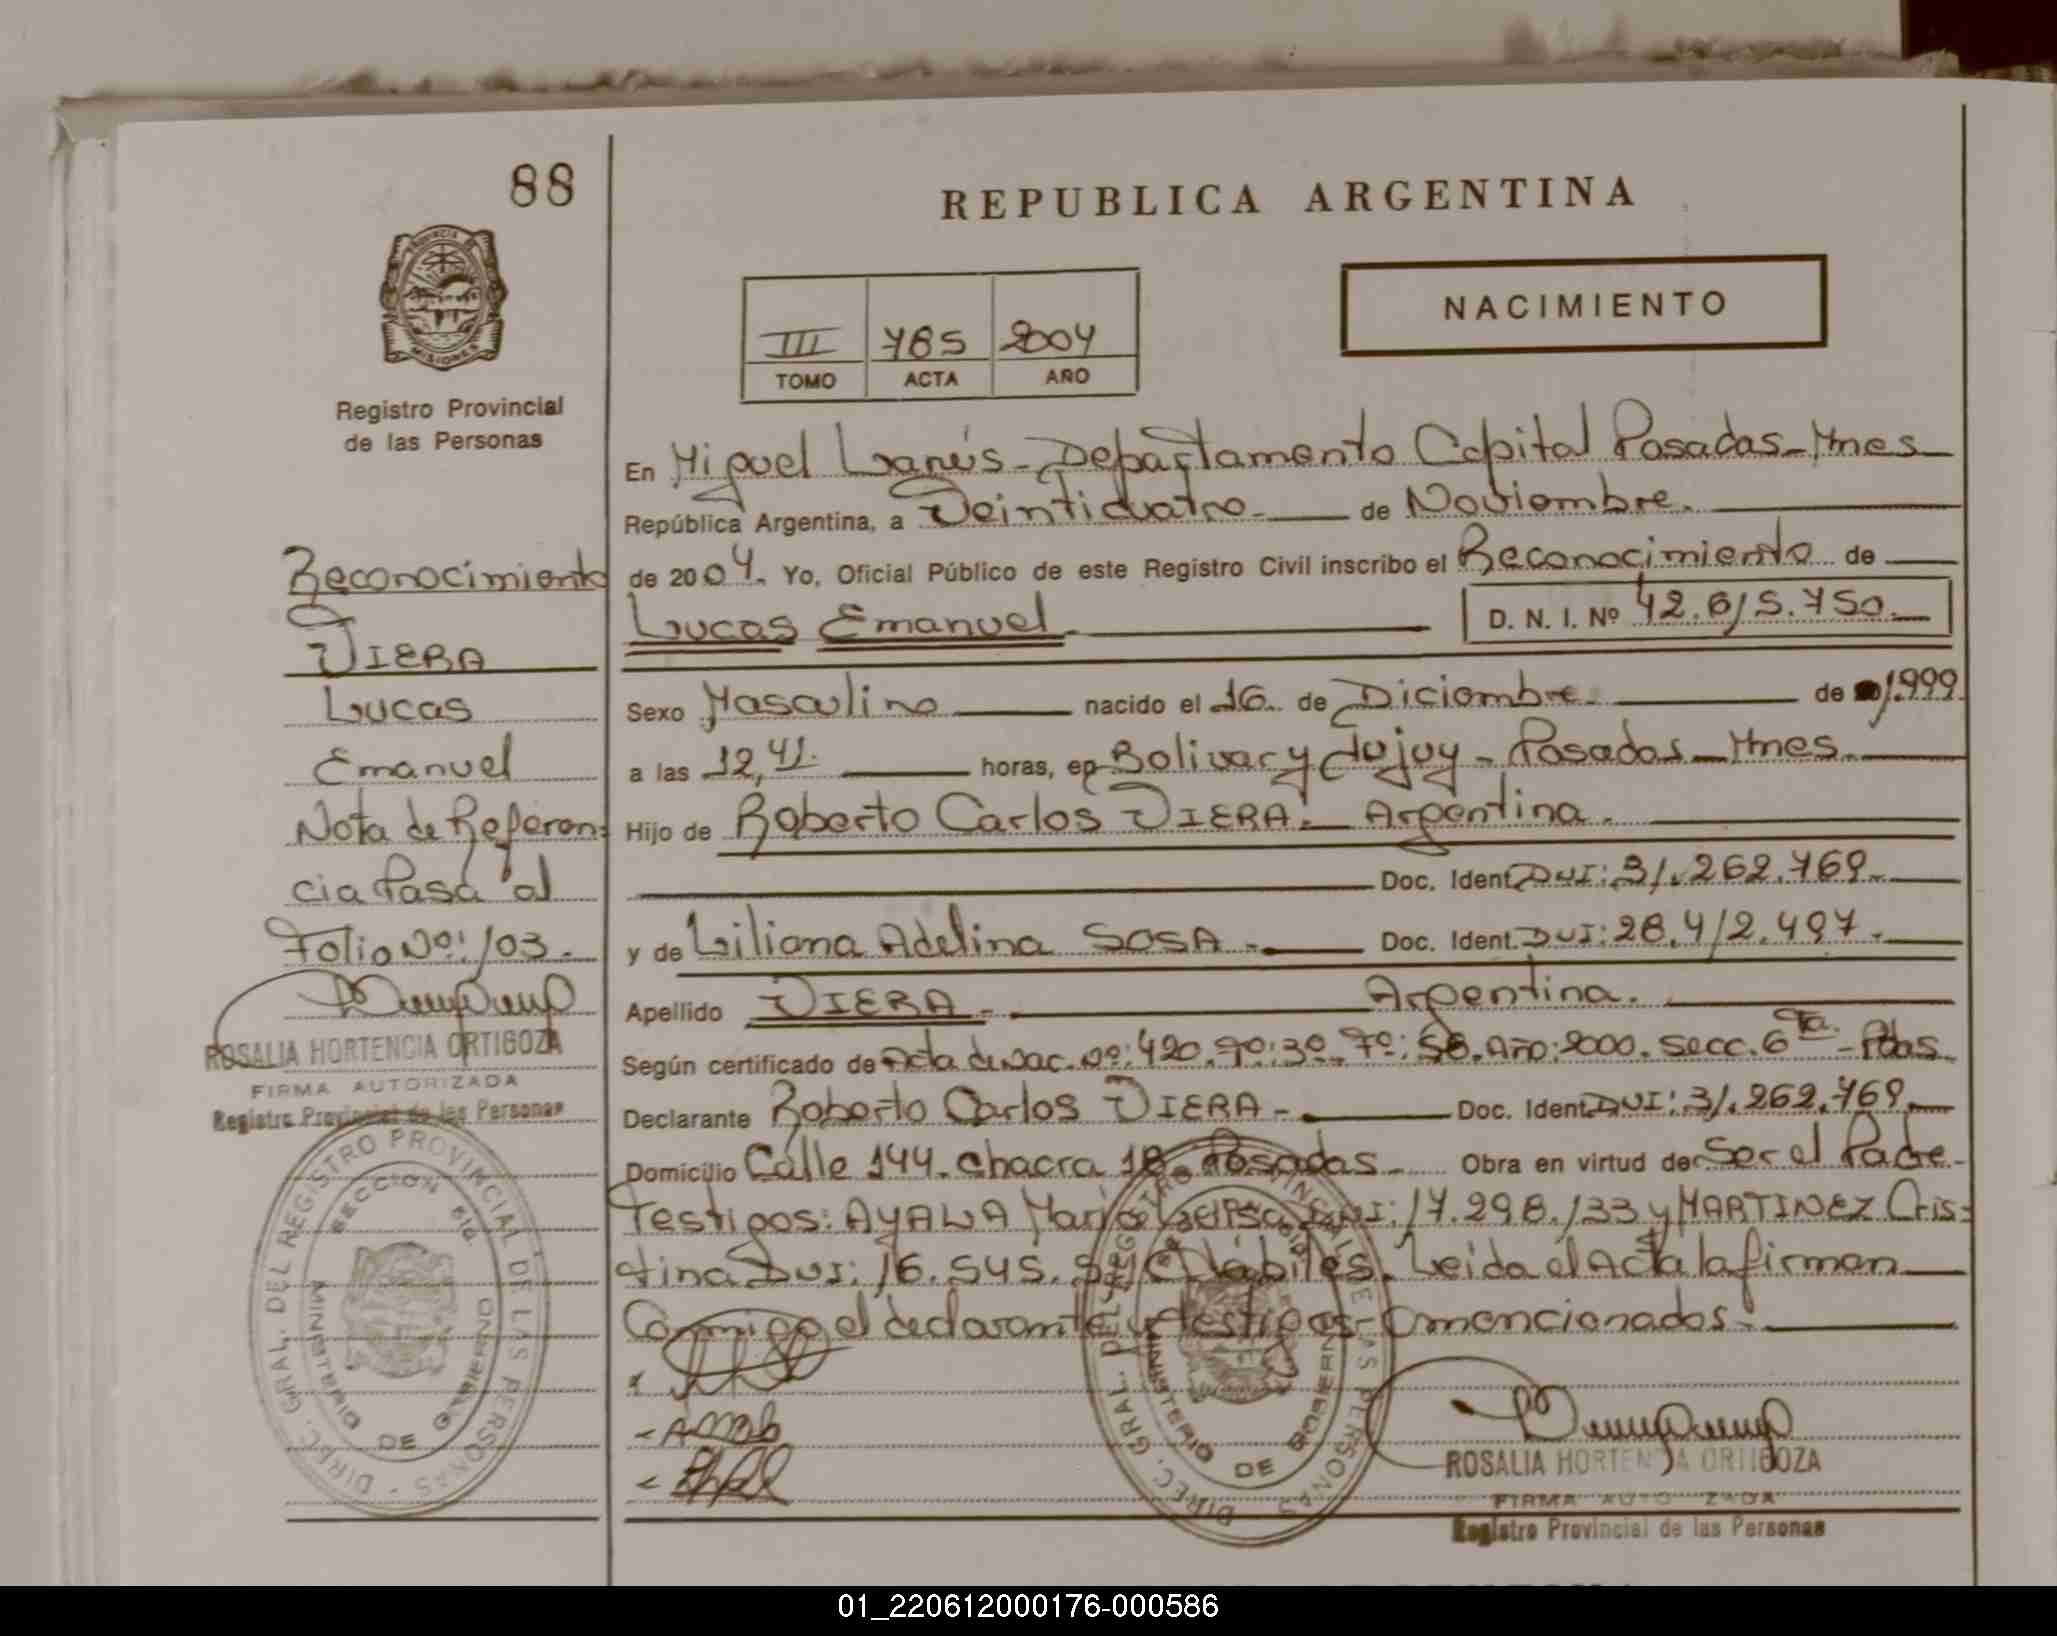 88
REPUBLICA ARGENTINA
PROVINCIA DE
MISIONES
NACIMIENTO
III 785 2004
TOMO ACTA AÑO
Registro Provincial
de las Personas
En Miguel Lanús - Departamento Capital Posadas - Mnes
República Argentina, a Veinticuatro de Noviembre.
de 2004. Yo, Oficial Público de este Registro Civil inscribo el Reconocimiento de
Lucas Emanuel D. N. I. Nº 42.615.750.
Sexo Masculino nacido el 16 de Diciembre de 1.999
a las 12,41. horas, en Bolivar y Jujuy - Posadas - Mnes.
Hijo de Roberto Carlos VIERA. Argentina.
Doc. Ident. DNI: 31.262.769.
y de Liliana Adelina SOSA. Doc. Ident. DNI: 28.412.497.
Apellido VIERA. Argentina.
Según certificado de Acta de Nac. Nº: 420. Tº: 3º. Fº: 58. Año: 2000. Secc. 6ta. - Pdas.
Declarante Roberto Carlos VIERA - Doc. Ident. DNI: 31.262.769.
Domicilio Calle 144. Chacra 18. Posadas. Obra en virtud de Ser el Padre.
Testigos: AYALA DNI: 17.298.133 y MARTINEZ Cris=
tina DNI: 16.545. Hábiles. Leida el Acta la firman
Conmigo el declarante y testigos mencionados.
Reconocimiento
VIERA
Lucas
Emanuel
Nota de Referen=
cia Pasa al
Folio Nº: 103.
ROSALIA HORTENCIA ORTIGOZA
FIRMA AUTORIZADA
Registro Provincial de las Personas
DIREC. GRAL. DEL REGISTRO PROVINCIAL DE LAS PERSONAS
MINISTERIO DE GOBIERNO
DIREC. GRAL. DEL REGISTRO PROVINCIAL DE LAS PERSONAS
MINISTERIO DE GOBIERNO
ROSALIA HORTENCIA ORTIGOZA
FIRMA AUTORIZADA
Registro Provincial de las Personas
01_220612000176-000586